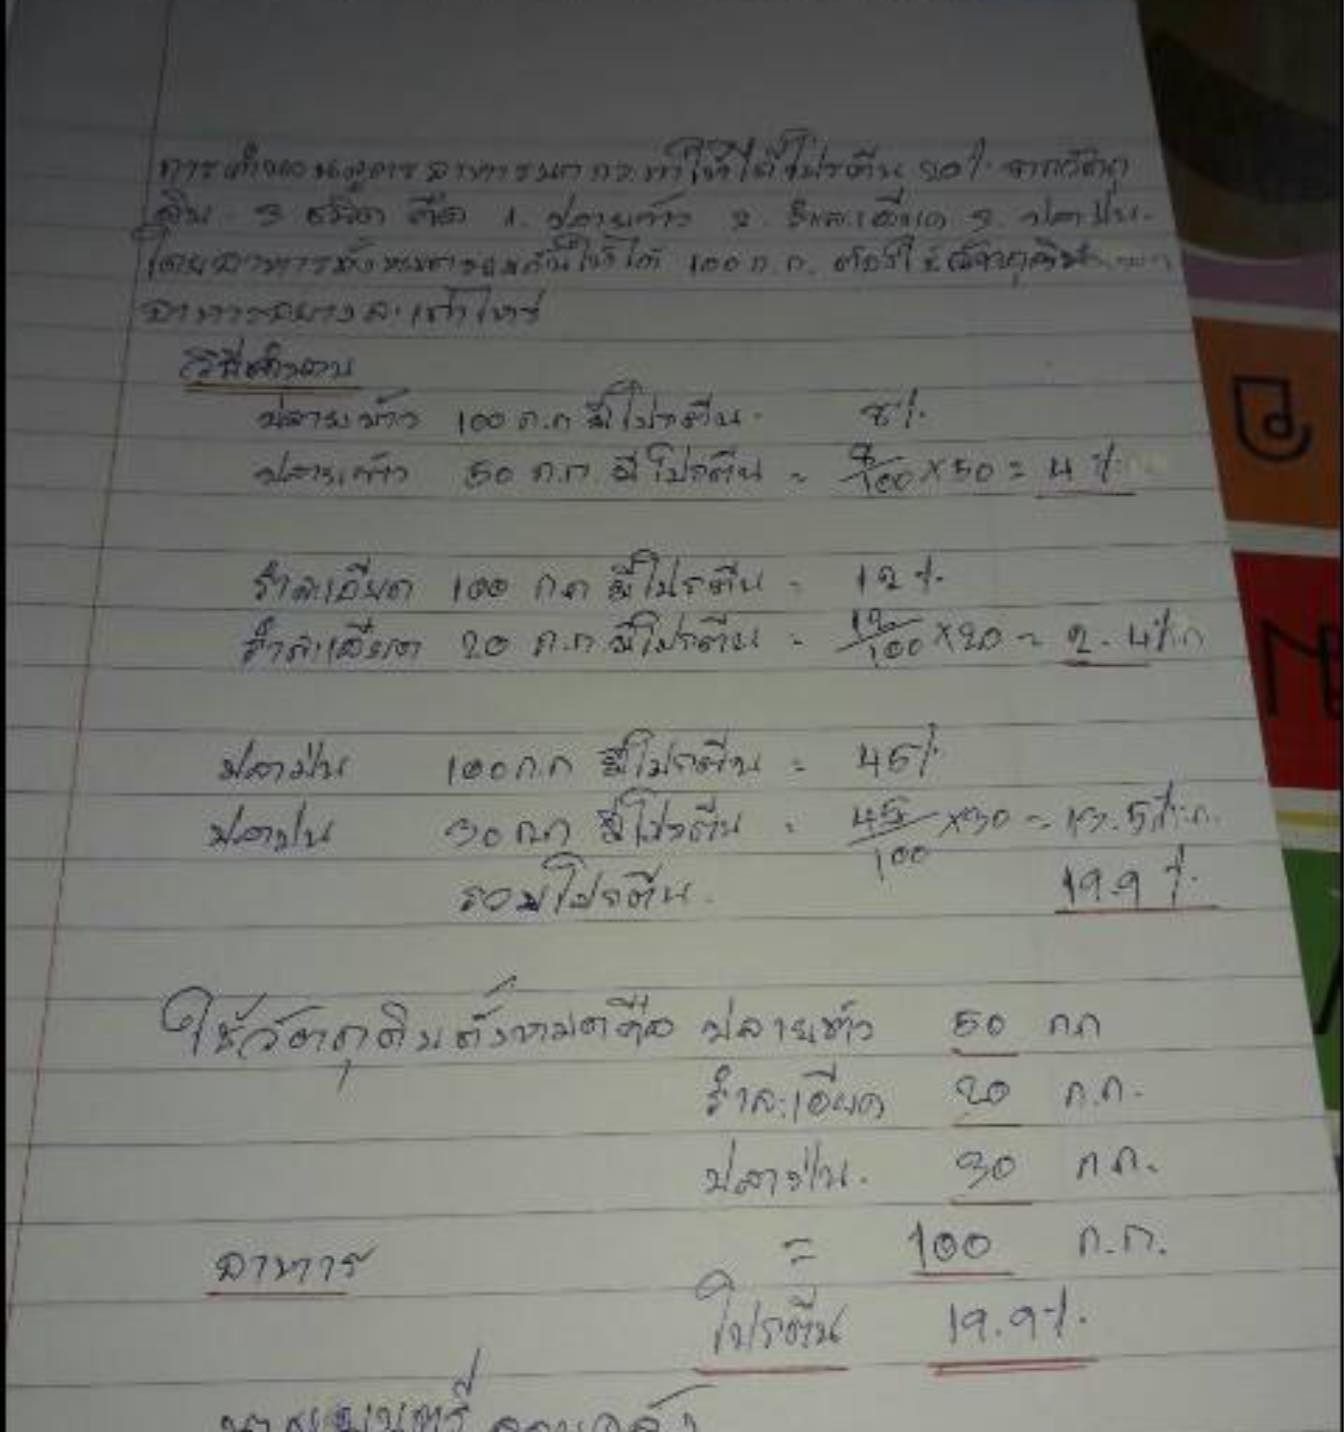 การคำนวนสูตรอาหารนกกะทาให้ได้โปรตีน 20% จากวัตถุ
ดิบ 3 ชนิด คือ 1. ปลายข้าว 2. รำละเอียด 3. ปลาป่น
โดยอาหารทั้งหมดรวมกันให้ได้ 100 ก.ก. ต้องใช้วัตถุดิบ
อาหารอย่างละเท่าไหร่
วิธีคำนวน
ปลายข้าว 100 ก.ก มีโปรตีน 8%
ปลายข้าว 50 ก.ก. มีโปรตีน = 8/100 x 50 = 4 %
รำละเอียด 100 ก.ก มีโปรตีน = 12 %
รำละเอียด 20 ก.ก มีโปรตีน = 12/100 x 20 = 2.4%
ปลาป่น 100 ก.ก มีโปรตีน = 45%
ปลาป่น 30 ก.ก มีโปรตีน = 45/100 x 30 = 13.5%
รวมโปรตีน 19.9 %
ใช้วัตถุดิบทั้งหมดคือ ปลายข้าว 50 ก.ก
รำละเอียด 20 ก.ก.
ปลาป่น 30 ก.ก.
อาหาร = 100 ก.ก.
โปรตีน 19.9%